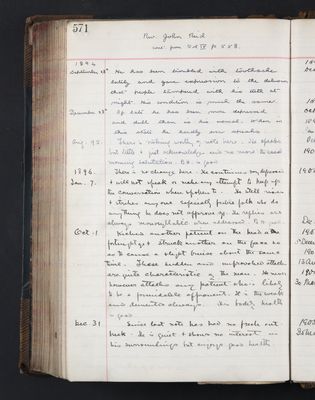 571
Rev. John Reid
cont. from Vol IV p. 558.
1894
September 28th He has been troubled with toothache
lately and gave expression to the delusion
that people tampered with his teeth at
night. His condition is much the same.
December 28th Of late he has been more depressed
and dull than is his normal. When in
this state he hardly ever speaks.
Aug. 95. There is nothing worthy of note here. He speaks
but little & just acknowledges and no more the usual
morning salutation. B.H. is good
1896. There is no change here. He continues
Jan. 7. & will not speak or make any attempt to keep up
the conversation when spoken to. He still
& strikes anyone especially feeble folk who do
anything he does not approve of. His replies are
always monosyllabic when addressed.
Oct. 1 Kicked another patient on the head a
fortnight ago & struck another on the face so
as to cause a slight bruise about the same
time. These sudden and unprovoked attacks
are quite characteristic of the man. He never
however attacks any patient who is likely
to be a formidable opponent. It is the weak
and demented always. His bodily health
is good
Dec. 31 Since last note has had no fresh out
break. He is quiet & shows no interest in
his surroundings but enjoys good health